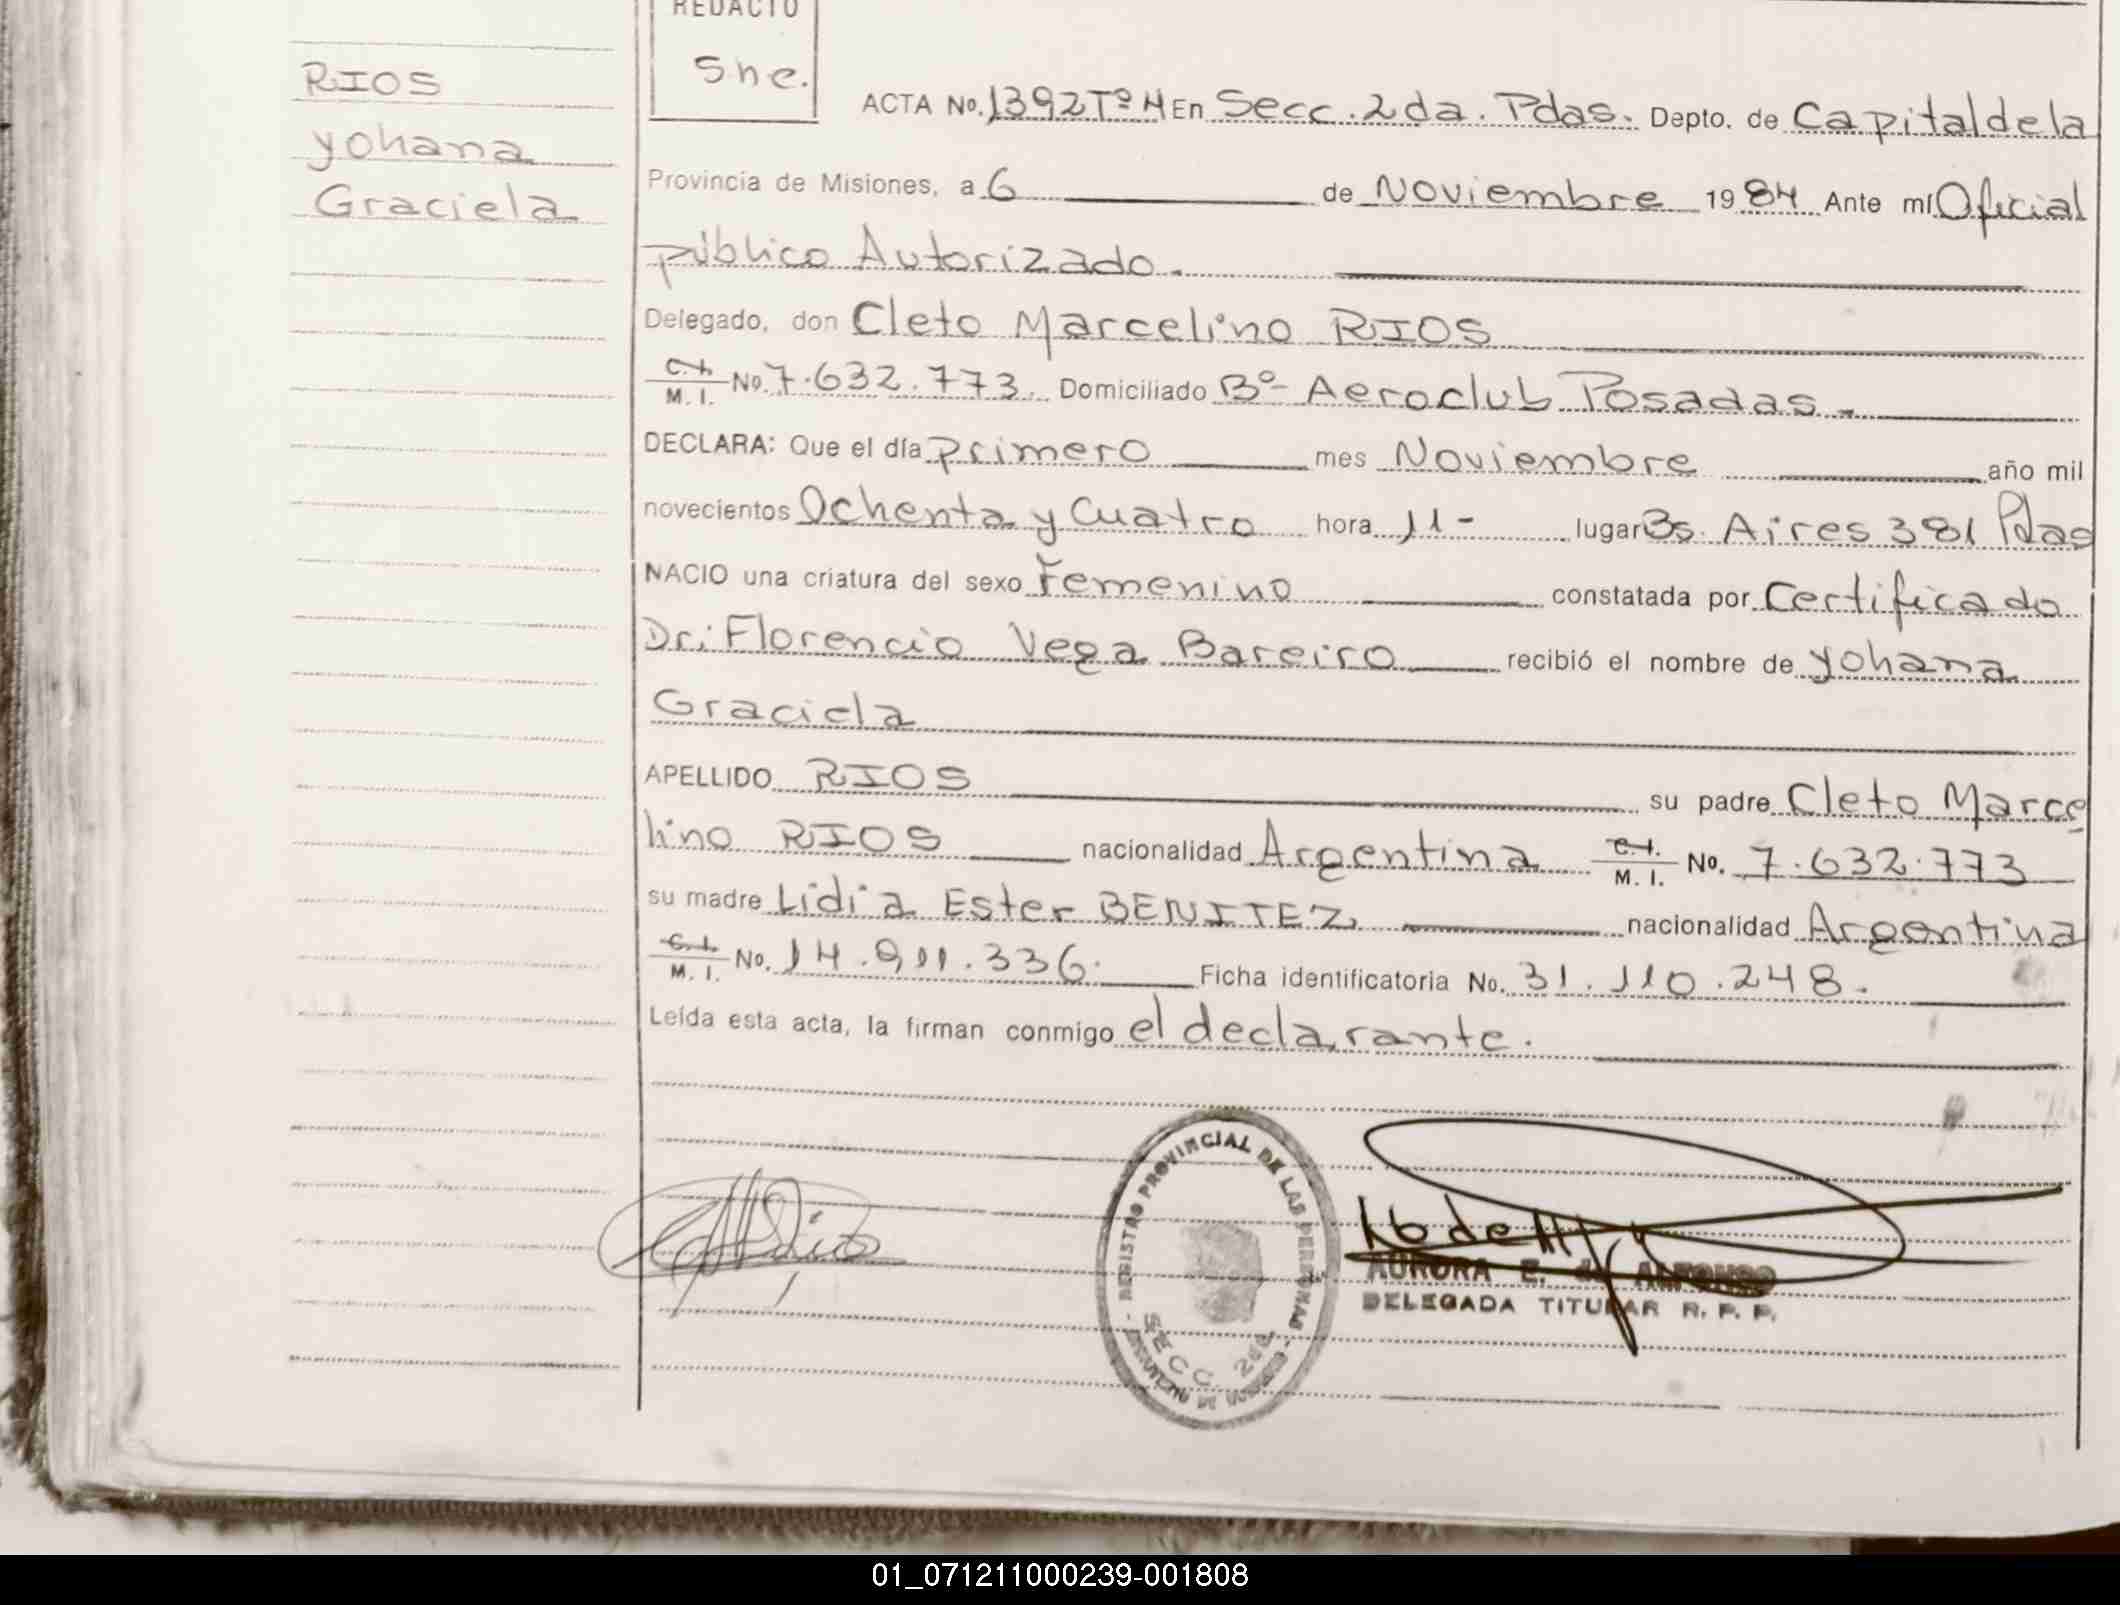 REDACTO
Sne.
RIOS
yohana
Graciela
ACTA No. 1392 Tº 4 En Secc. 2da. Pdas. Depto. de Capital de la
Provincia de Misiones, a 6 de Noviembre 1984 Ante mí Oficial
público Autorizado.
Delegado, don Cleto Marcelino RIOS
C.I. M. I. No. 7.632.773. Domiciliado Bº- Aeroclub Posadas.
DECLARA: Que el día primero mes Noviembre año mil
novecientos Ochenta y Cuatro hora 11- lugar Bs. Aires 381 Pdas
NACIO una criatura del sexo Femenino constatada por Certificado
Dr: Florencio Vega Bareiro recibió el nombre de yohana
Graciela
APELLIDO RIOS su padre Cleto Marce
lino RIOS nacionalidad Argentina C.I. M. I. No. 7.632.773
su madre Lidia Ester BENITEZ nacionalidad Argentina
C.I. M. I. No. 14.911.336. Ficha identificatoria No. 31.110.248.
Leída esta acta, la firman conmigo el declarante.
REGISTRO PROVINCIAL DE LAS PERSONAS
SECC. 2da
AURORA E. de ALFONSO
DELEGADA TITULAR R. P. P.
01_071211000239-001808